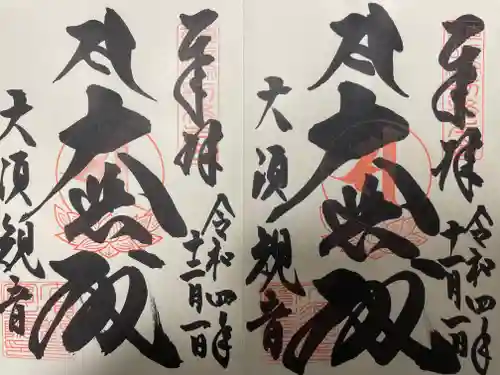 奉拝
令和四年
十一月一日
大悲殿
大須観音
奉拝
令和四年
十一月一日
大悲殿
大須観音